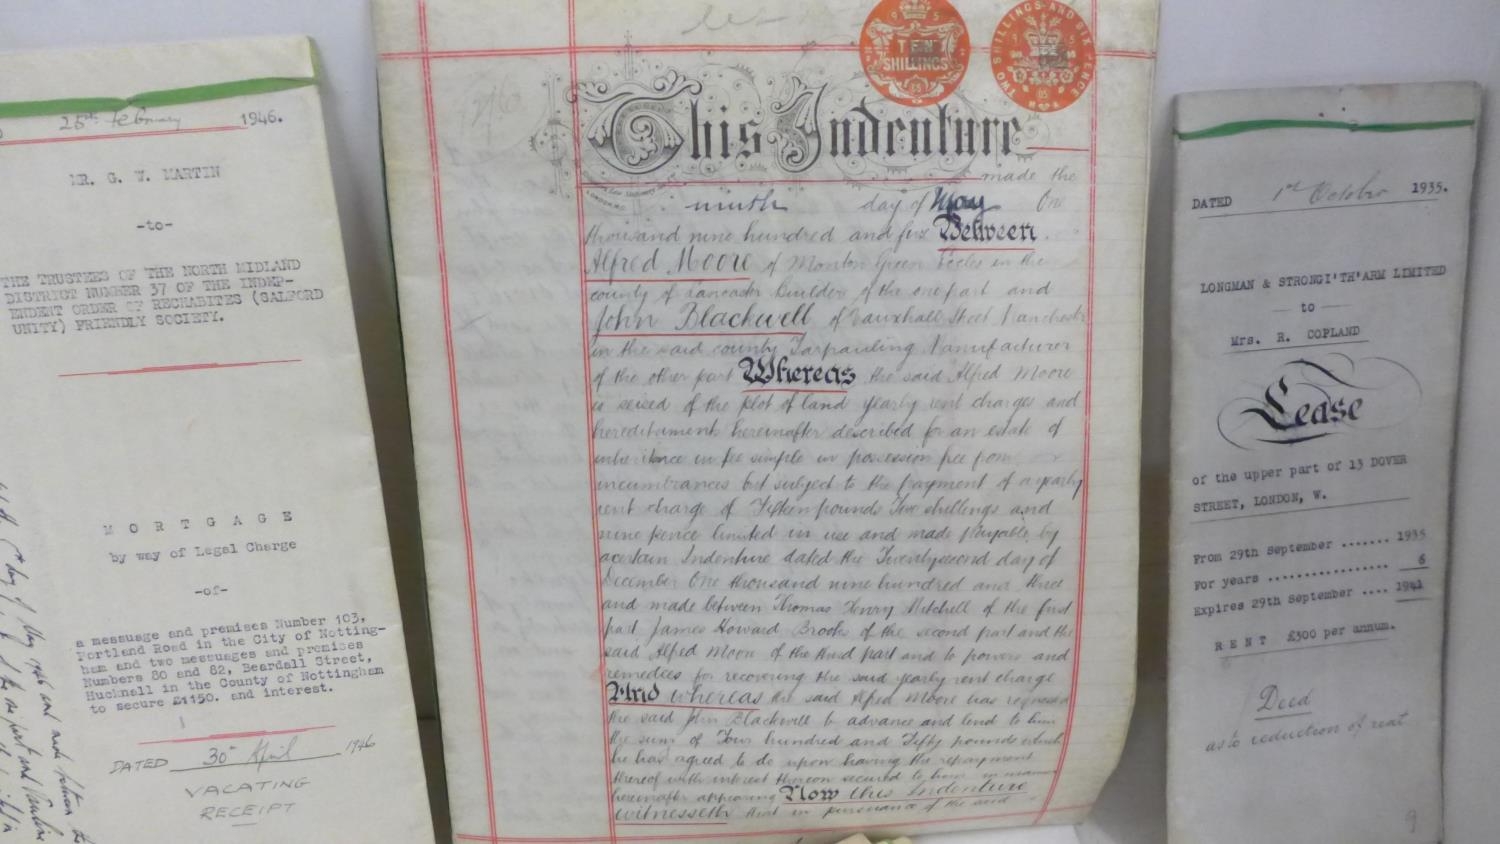 25th February 1946.
MR. G. W. MARTIN
-to-
THE TRUSTEES OF THE NORTH MIDLAND
DISTRICT NUMBER 37 OF THE INDEP-
ENDENT ORDER OF RECHABITES (SALFORD
UNITY) FRIENDLY SOCIETY.
MORTGAGE
by way of Legal Charge
-of-
a messuage and premises Number 103,
Portland Road in the City of Notting-
ham and two messuages and premises
Numbers 80 and 82, Beardall Street,
Hucknall in the County of Nottingham
to secure £1150. and interest.
DATED 30th April 1946
VACATING
RECEIPT
TEN
SHILLINGS
TWO SHILLINGS AND SIX PENCE
This Indenture
made the
ninth day of May One
thousand nine hundred and five Between
Alfred Moore of Monton Green Eccles in the
county of Lancaster Builder of the one part and
John Blackwell of Vauxhall Street Manchester
in the said county Tarpauling Manufacturer
of the other part Whereas the said Alfred Moore
is seised of the plot of land yearly rent charges and
hereditaments hereinafter described for an estate of
inheritance in fee simple in possession free from
incumbrances but subject to the payment of a yearly
rent charge of Fifteen pounds Five shillings and
nine pence limited in use and made payable by
a certain Indenture dated the Twentysecond day of
December One thousand nine hundred and three
and made between Thomas Henry Mitchell of the first
part James Howard Brooks of the second part and the
said Alfred Moore of the third part and to powers and
remedies for recovering the said yearly rent charge
And whereas the said Alfred Moore has requested
the said John Blackwell to advance and lend to him
the sum of Four hundred and Fifty pounds which
he has agreed to do upon having the repayment
thereof with interest thereon secured to him in manner
hereinafter appearing Now this Indenture
witnesseth that in pursuance of the said
DATED 1st October 1935.
LONGMAN & STRONGI'TH'ARM LIMITED
to
Mrs. R. COPLAND
Lease
of the upper part of 13 DOVER
STREET, LONDON, W.
From 29th September ....... 1935
For years ................. 6
Expires 29th September .... 1941
RENT £300 per annum.
Deed
as to reduction of rent
9